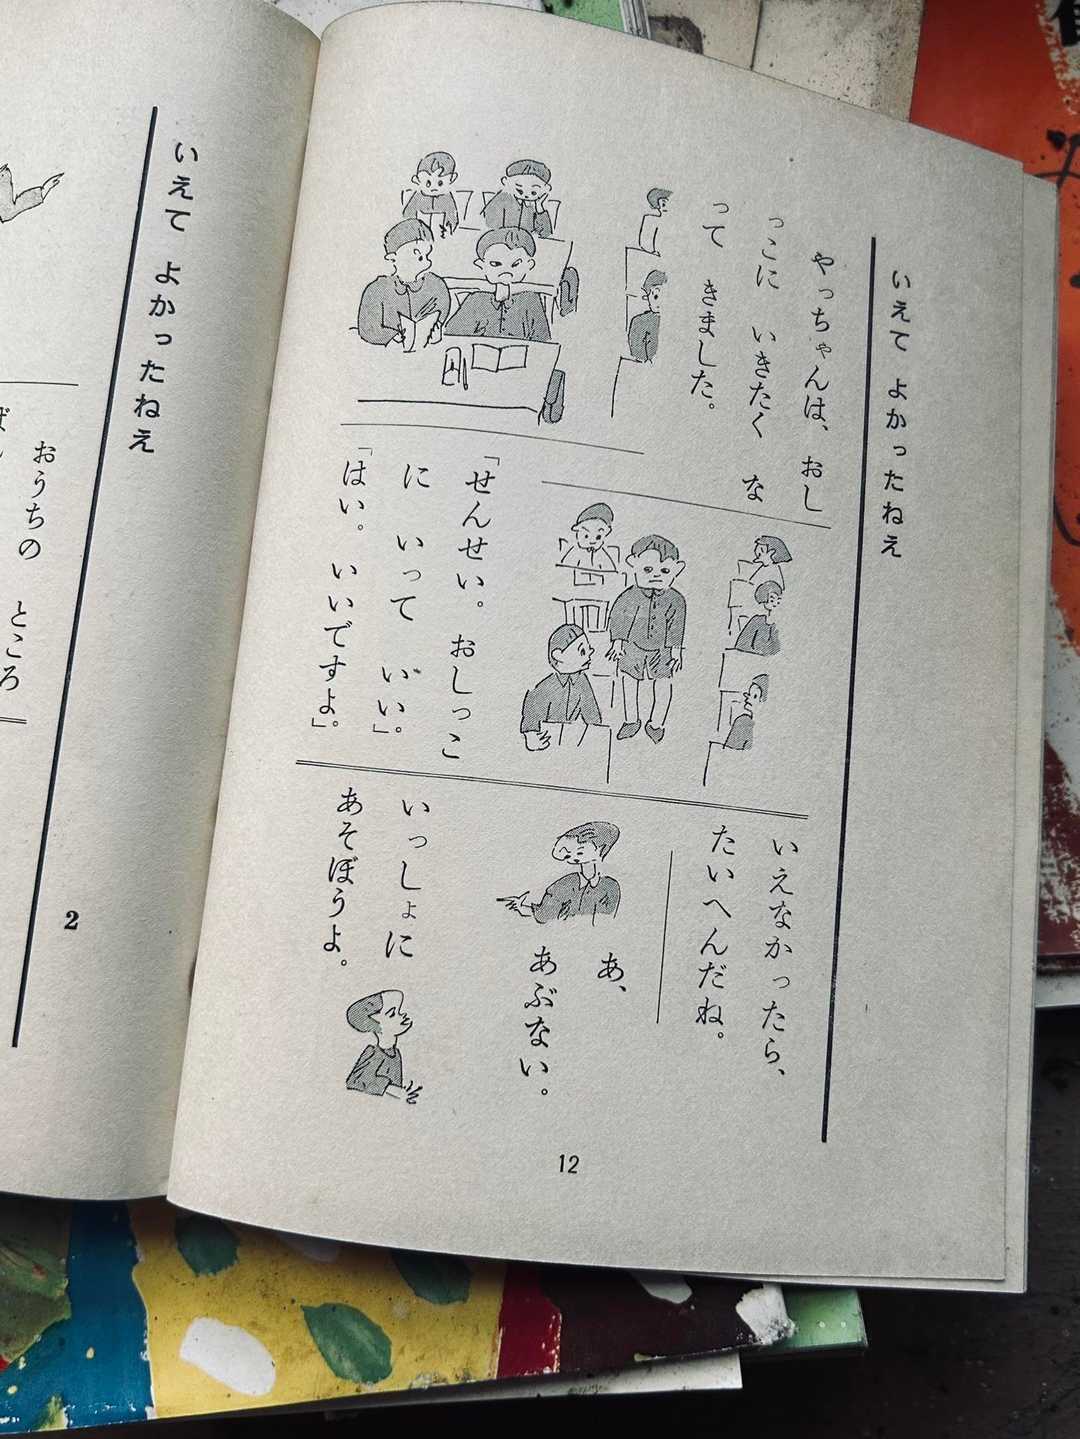 いえて よかったねえ
やっちゃんは、 おし
っこに いきたく な
って きました。
「せんせい。 おしっこ
に いって いい」。
「はい。 いいですよ。」
いえなかったら、
たいへんだね。
あ、
あぶない。
いっしょに
あそぼうよ。
12
いえて よかったねえ
おうちの ところ
2